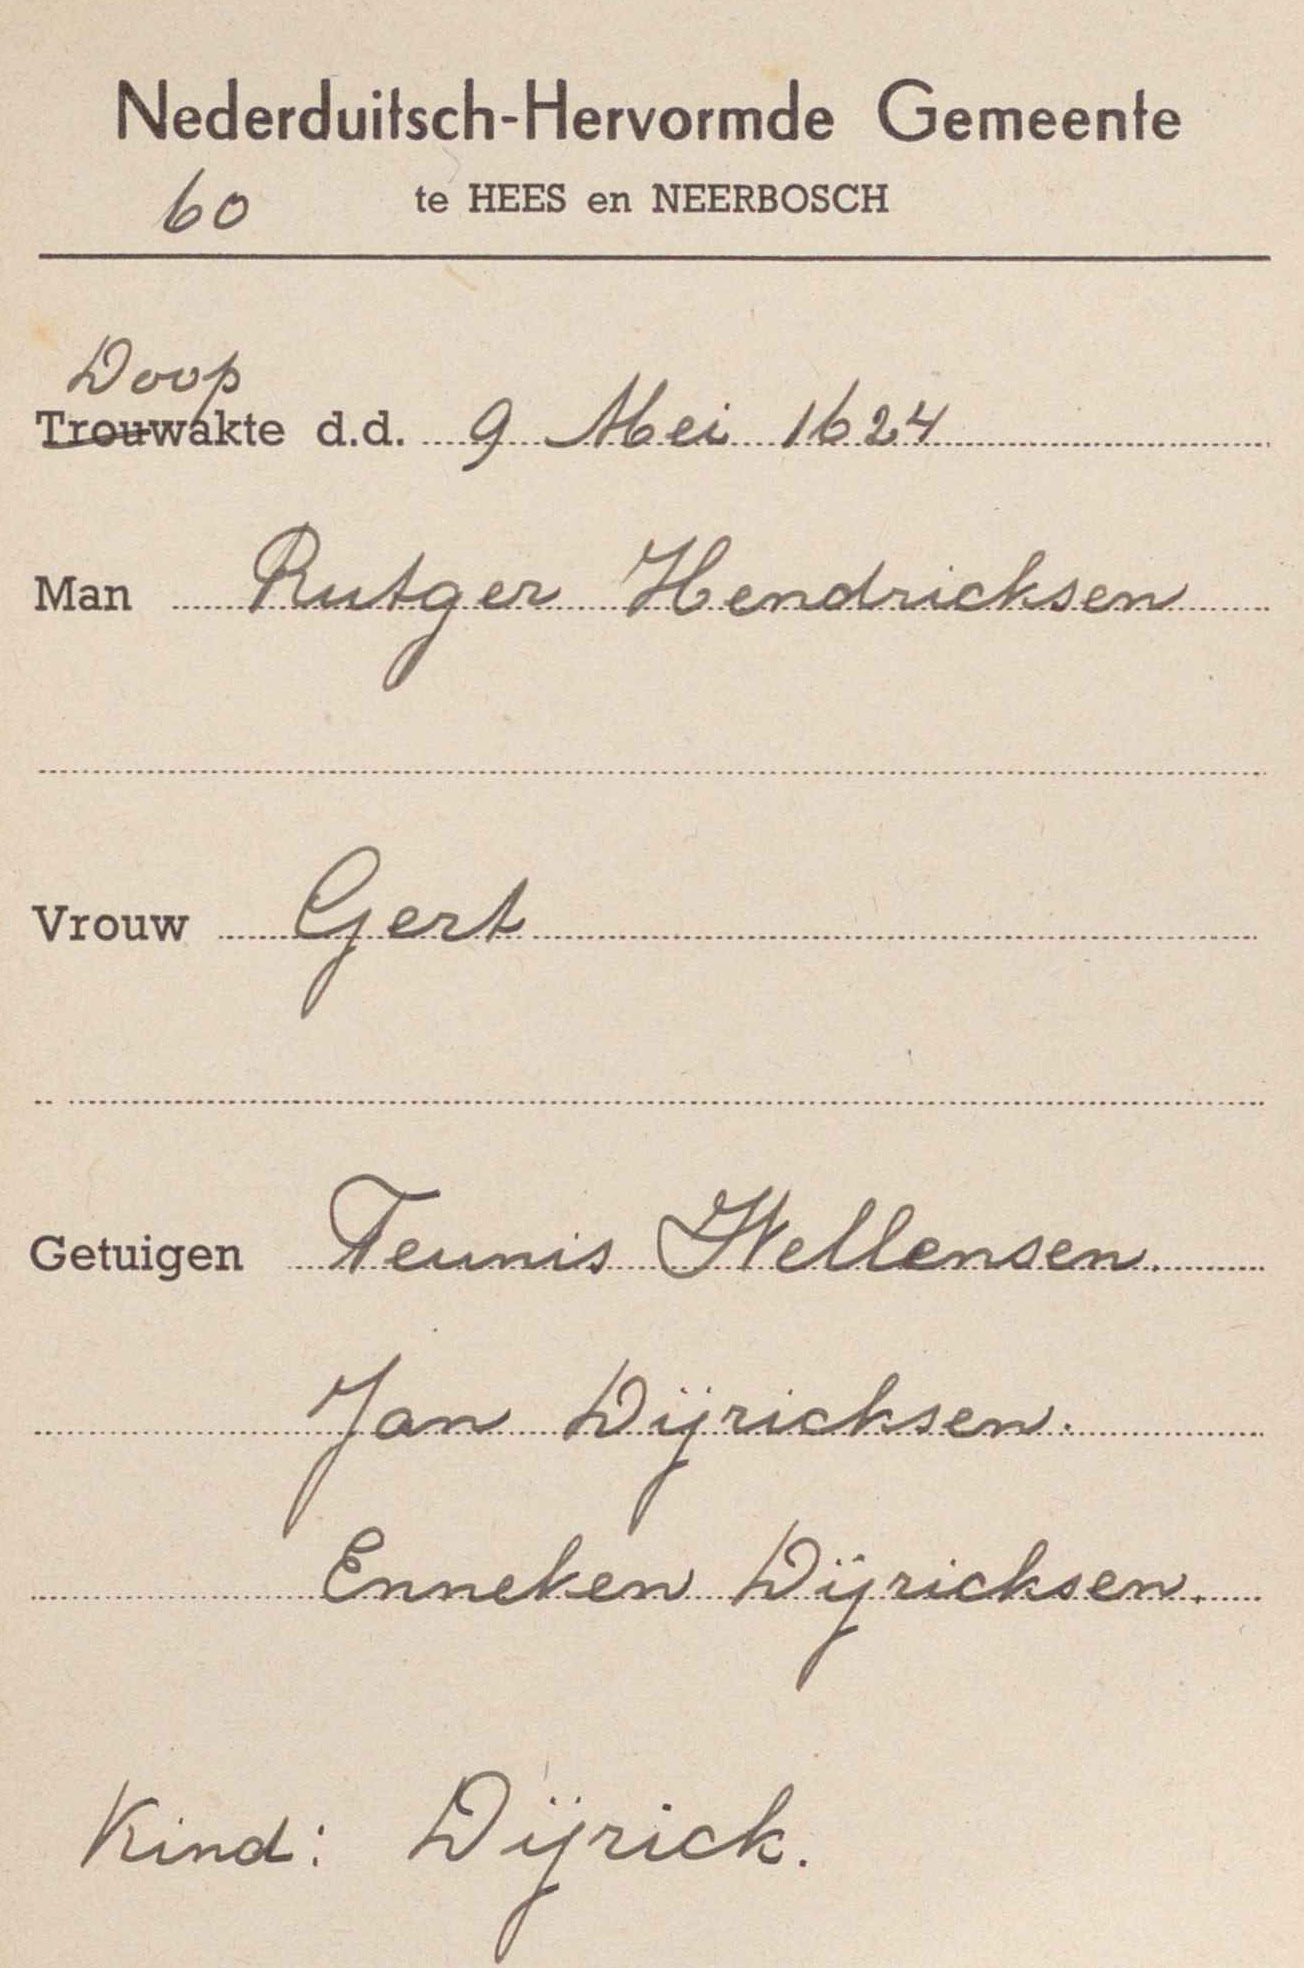 Nederduitsch-Hervormde Gemeente
60 te HEES en NEERBOSCH
Doop
Trouwakte d.d. 9 Mei 1624
Man Rutger Hendricksen
Vrouw Gert
Getuigen Teunis Wellensen.
Jan Dijricksen.
Enneken Dijricksen.
Kind: Dijrick.